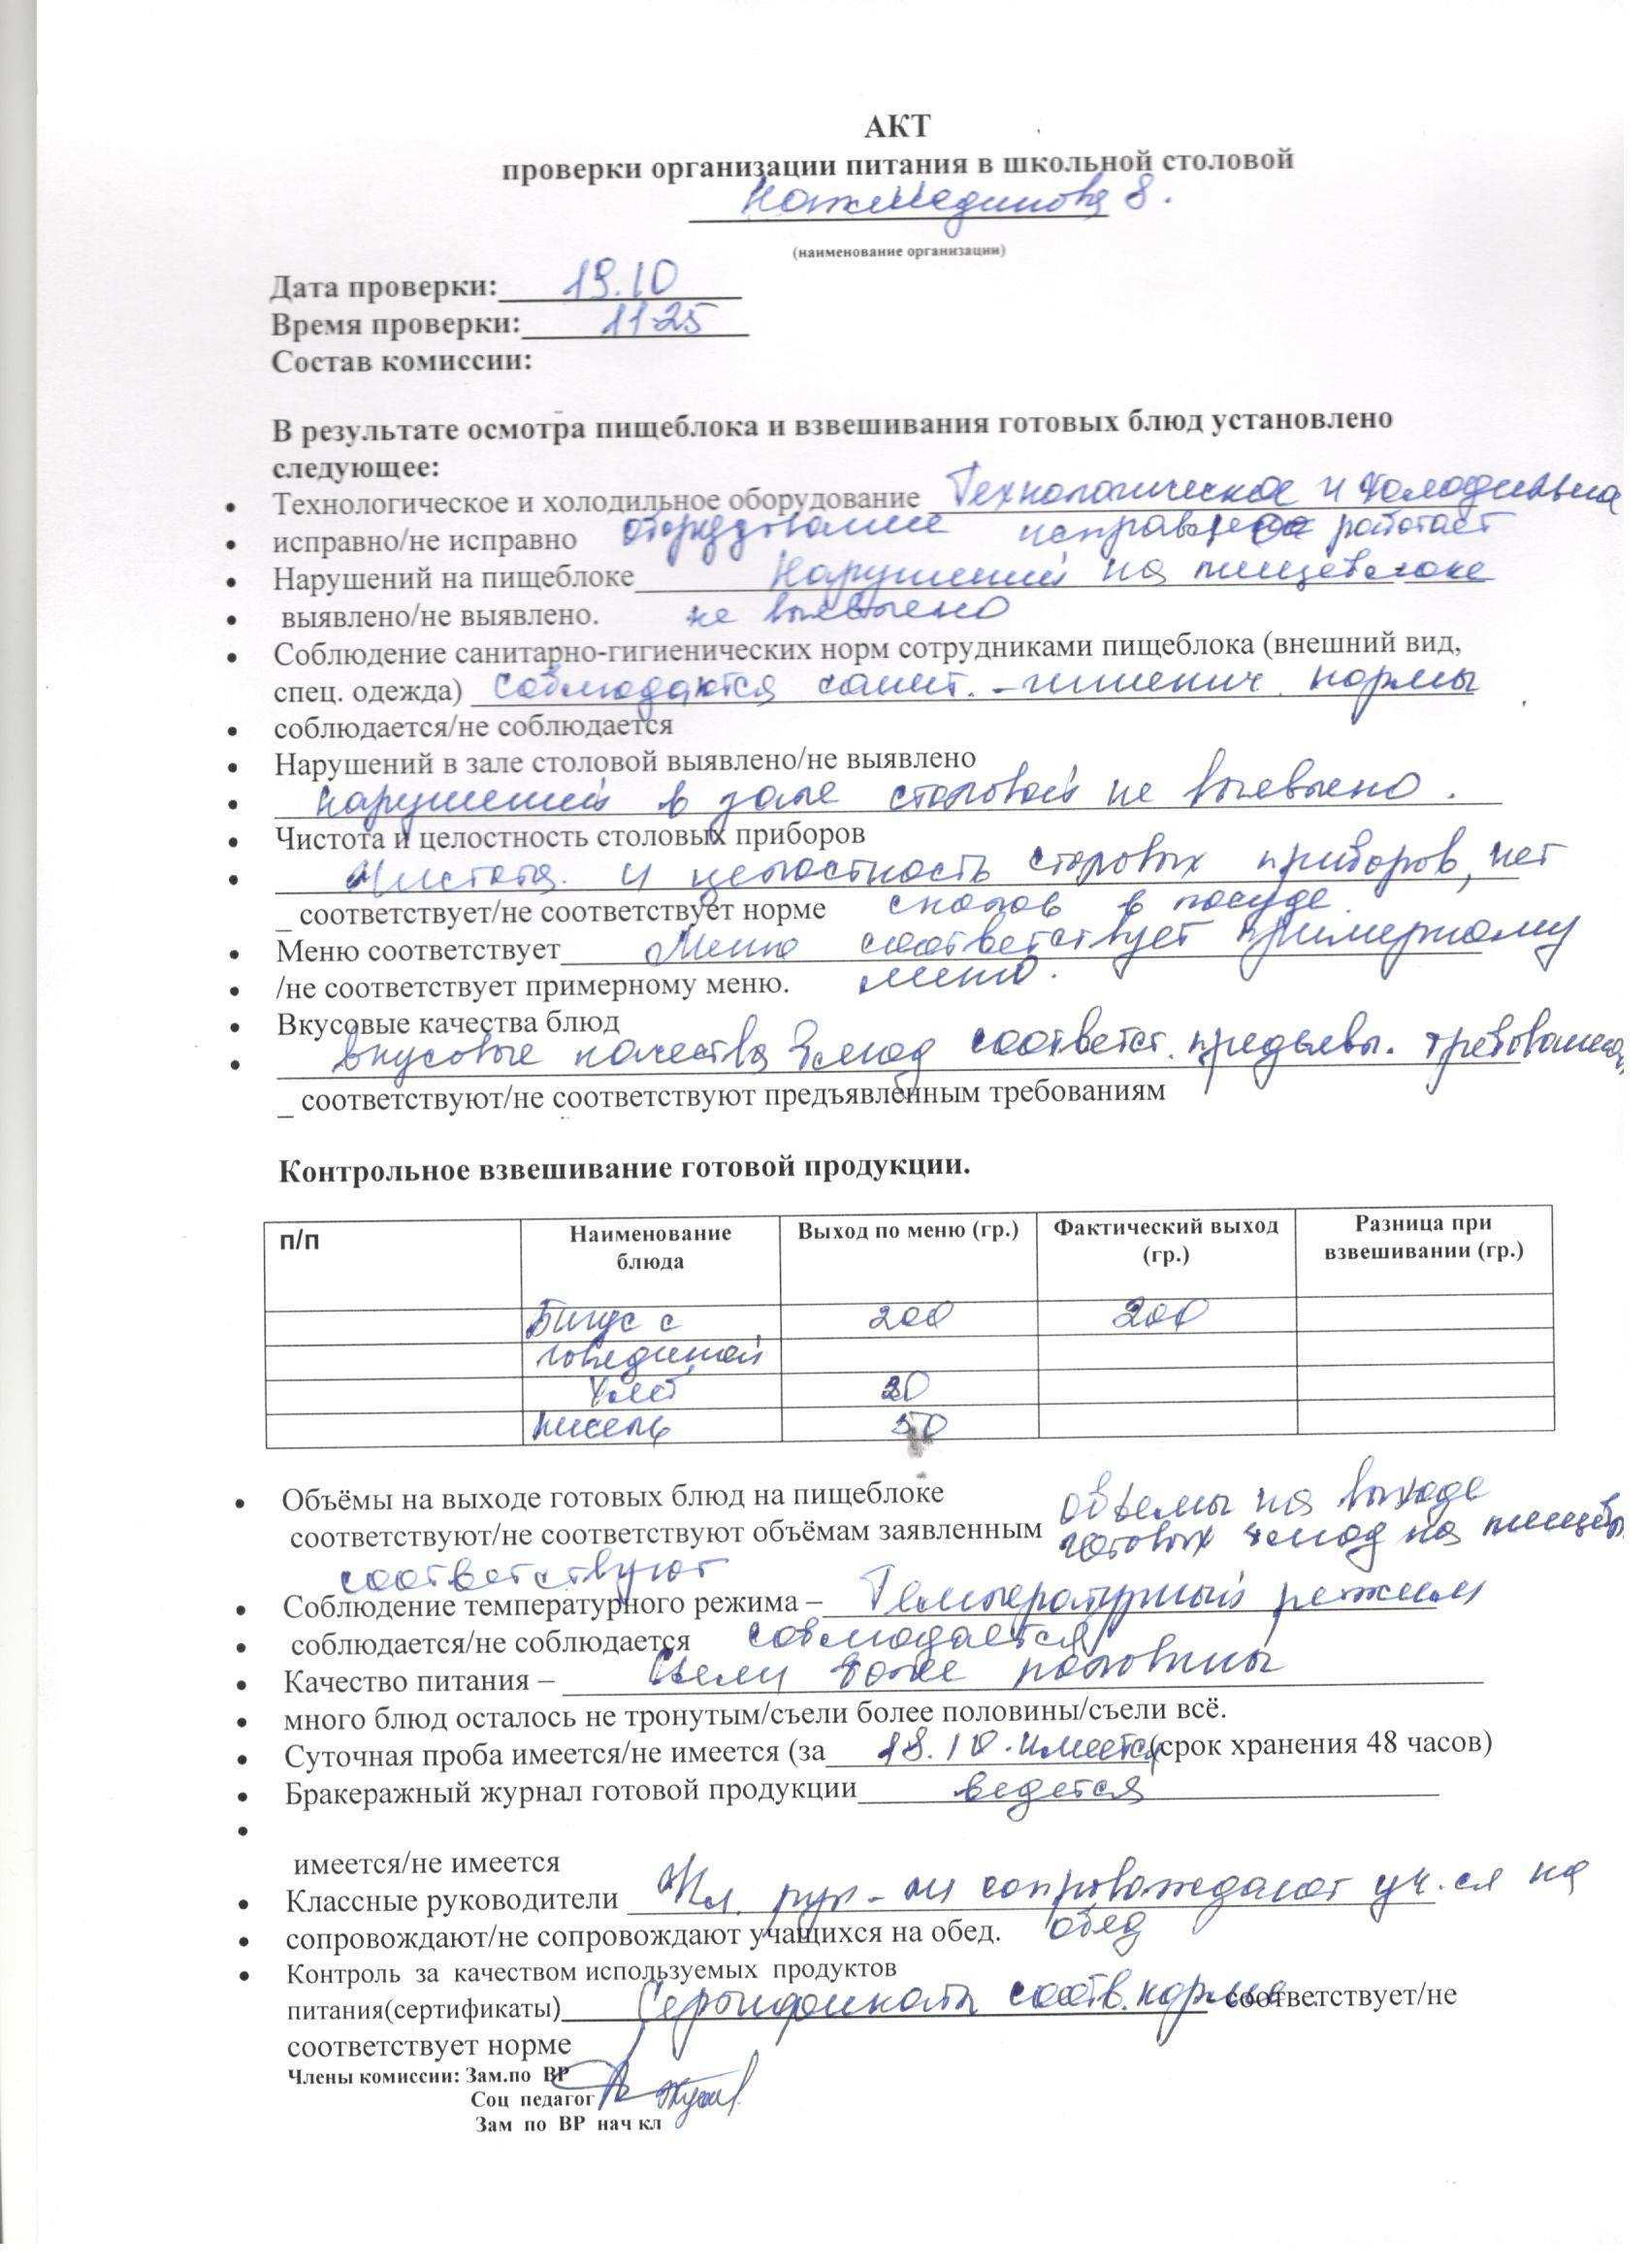 АКТ
проверки организации питания в школьной столовой
Нажмединова 8.
(наименование организации)
Дата проверки: 19.10
Время проверки: 11-25
Состав комиссии:
В результате осмотра пищеблока и взвешивания готовых блюд установлено
следующее:
Технологическое и холодильное оборудование Технологическое и холодильна
исправно/не исправно оборудование работает
Нарушений на пищеблоке Нарушений на пищеблоке
выявлено/не выявлено. не выявлено
Соблюдение санитарно-гигиенических норм сотрудниками пищеблока (внешний вид,
спец. одежда) соблюдаются санит. - гигиенич. нормы
соблюдается/не соблюдается
Нарушений в зале столовой выявлено/не выявлено
нарушений в зале столовой не выявлено.
Чистота и целостность столовых приборов
Чистота и целостность столовых приборов, нет
_ соответствует/не соответствует норме сколов в посуде.
Меню соответствует Меню соответствует примерному
/не соответствует примерному меню. меню.
Вкусовые качества блюд
вкусовые качества блюд соответст. предъявл. требования
_ соответствуют/не соответствуют предъявленным требованиям
Контрольное взвешивание готовой продукции.
п/п Наименование блюда Выход по меню (гр.) Фактический выход (гр.) Разница при взвешивании (гр.)
Бигус с 200 200
говядиной
Хлеб
кисель
Объёмы на выходе готовых блюд на пищеблоке объемы на выходе
соответствуют/не соответствуют объёмам заявленным готовых блюд на пищебл
соответствуют
Соблюдение температурного режима – Температурный режим
соблюдается/не соблюдается соблюдается
Качество питания – Съели более половины
много блюд осталось не тронутым/съели более половины/съели всё.
Суточная проба имеется/не имеется (за 18.10. имеется (срок хранения 48 часов)
Бракеражный журнал готовой продукции ведется
имеется/не имеется
Классные руководители Кл. рук-ли сопровождают уч.ся на
сопровождают/не сопровождают учащихся на обед. обед
Контроль за качеством используемых продуктов
питания(сертификаты) соотв. норме соответствует/не
соответствует норме
Члены комиссии: Зам.по ВР
Соц педагог
Зам по ВР нач кл